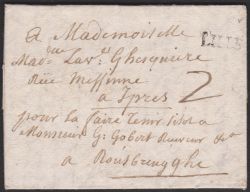 LILLE
A Mademoiselle
Mad.lle Lav.et Ghesquiere
Rüe Messinne
2
à Ypres
pour la faire tenir
Monsieur G: Gobert Receveur
a Rousbrugghe